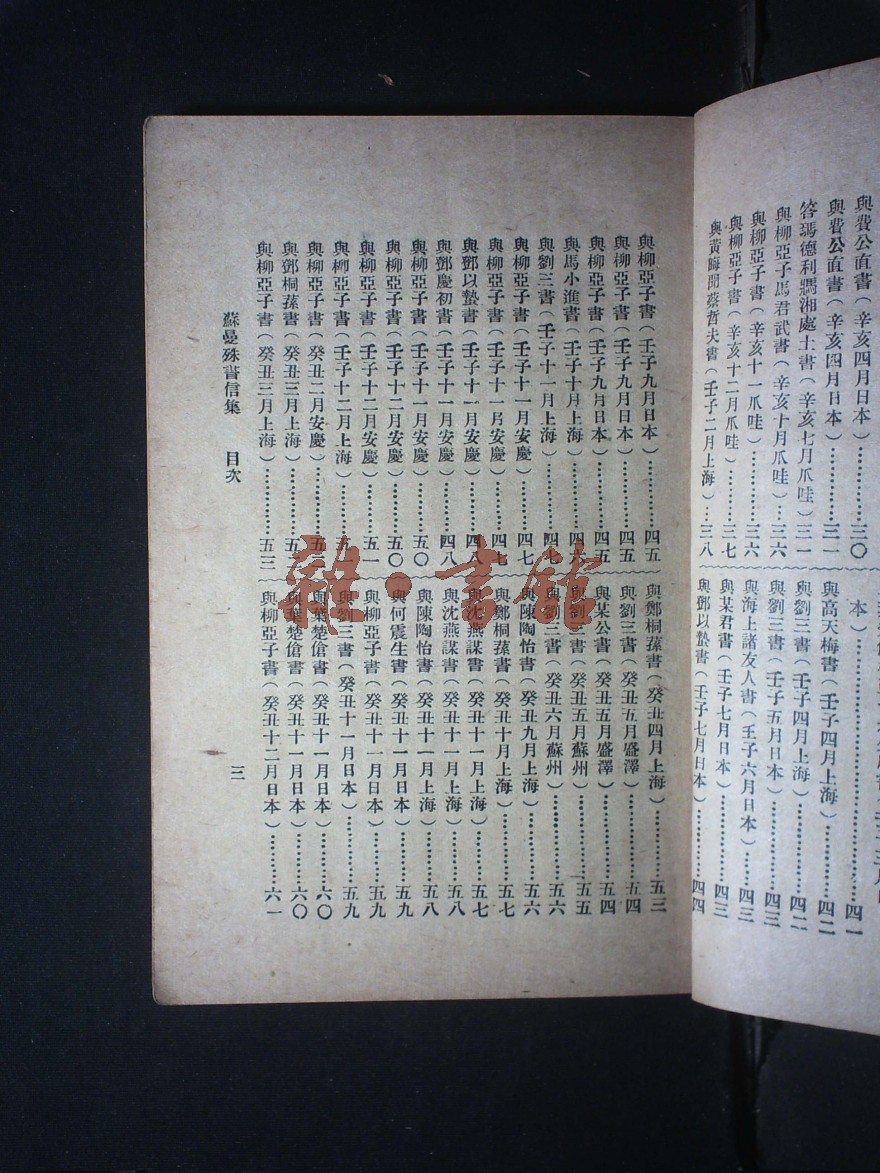 與費公直書（辛亥四月日本）…………三〇
與費公直書（辛亥四月日本）…………三一
答瑪德利瑪湘處士書（辛亥七月爪哇）三一
與柳亞子馬君武書（辛亥十月爪哇）…三六
與柳亞子書（辛亥十一爪哇）…………三六
與柳亞子書（辛亥十二月爪哇）………三七
與黃晦聞蔡哲夫書（壬子二月上海）…三八
本）……………………………………四一
與高天梅書（壬子四月上海）…………四二
與劉三書（壬子四月上海）……………四二
與劉三書（壬子五月日本）……………四三
與海上諸友人書（壬子六月日本）……四三
與某君書（壬子七月日本）……………四三
與鄧以蟄書（壬子七月日本）…………四四
與柳亞子書（壬子九月日本）…………四五
與柳亞子書（壬子九月日本）…………四五
與柳亞子書（壬子九月日本）…………四五
與馬小進書（壬子十月上海）…………四
與劉三書（壬子十一月上海）…………四七
與柳亞子書（壬子十一月安慶）………四七
與柳亞子書（壬子十一月安慶）………四七
與鄧以蟄書（壬子十一月安慶）………四八
與鄧慶初書（壬子十一月安慶）………四八
與柳亞子書（壬子十一月安慶）………五〇
與柳亞子書（壬子十二月安慶）………五〇
與柳亞子書（壬子十二月安慶）………五一
與柳亞子書（壬子十二月上海）………五
與柳亞子書（癸丑二月安慶）…………五
與鄧桐蓀書（癸丑三月上海）…………五
與柳亞子書（癸丑三月上海）…………五三
與鄭桐蓀書（癸丑四月上海）…………五三
與劉三書（癸丑五月盛澤）……………五四
與某公書（癸丑五月盛澤）……………五四
與劉三書（癸丑五月蘇州）……………五五
與劉三書（癸丑六月蘇州）……………五六
與陳陶怡書（癸丑九月上海）…………五六
與鄭桐蓀書（癸丑十月上海）…………五七
與沈燕謀書（癸丑十一月上海）………五七
與沈燕謀書（癸丑十一月上海）………五八
與陳陶怡書（癸丑十一月上海）………五八
與何震生書（癸丑十一月日本）………五九
與柳亞子書（癸丑十一月日本）………五九
與劉三書（癸丑十一月日本）…………五九
與葉楚傖書（癸丑十一月日本）………六〇
與葉楚傖書（癸丑十一月日本）………六〇
與柳亞子書（癸丑十二月日本）………六一
蘇曼殊書信集　目次
三
雜·書館